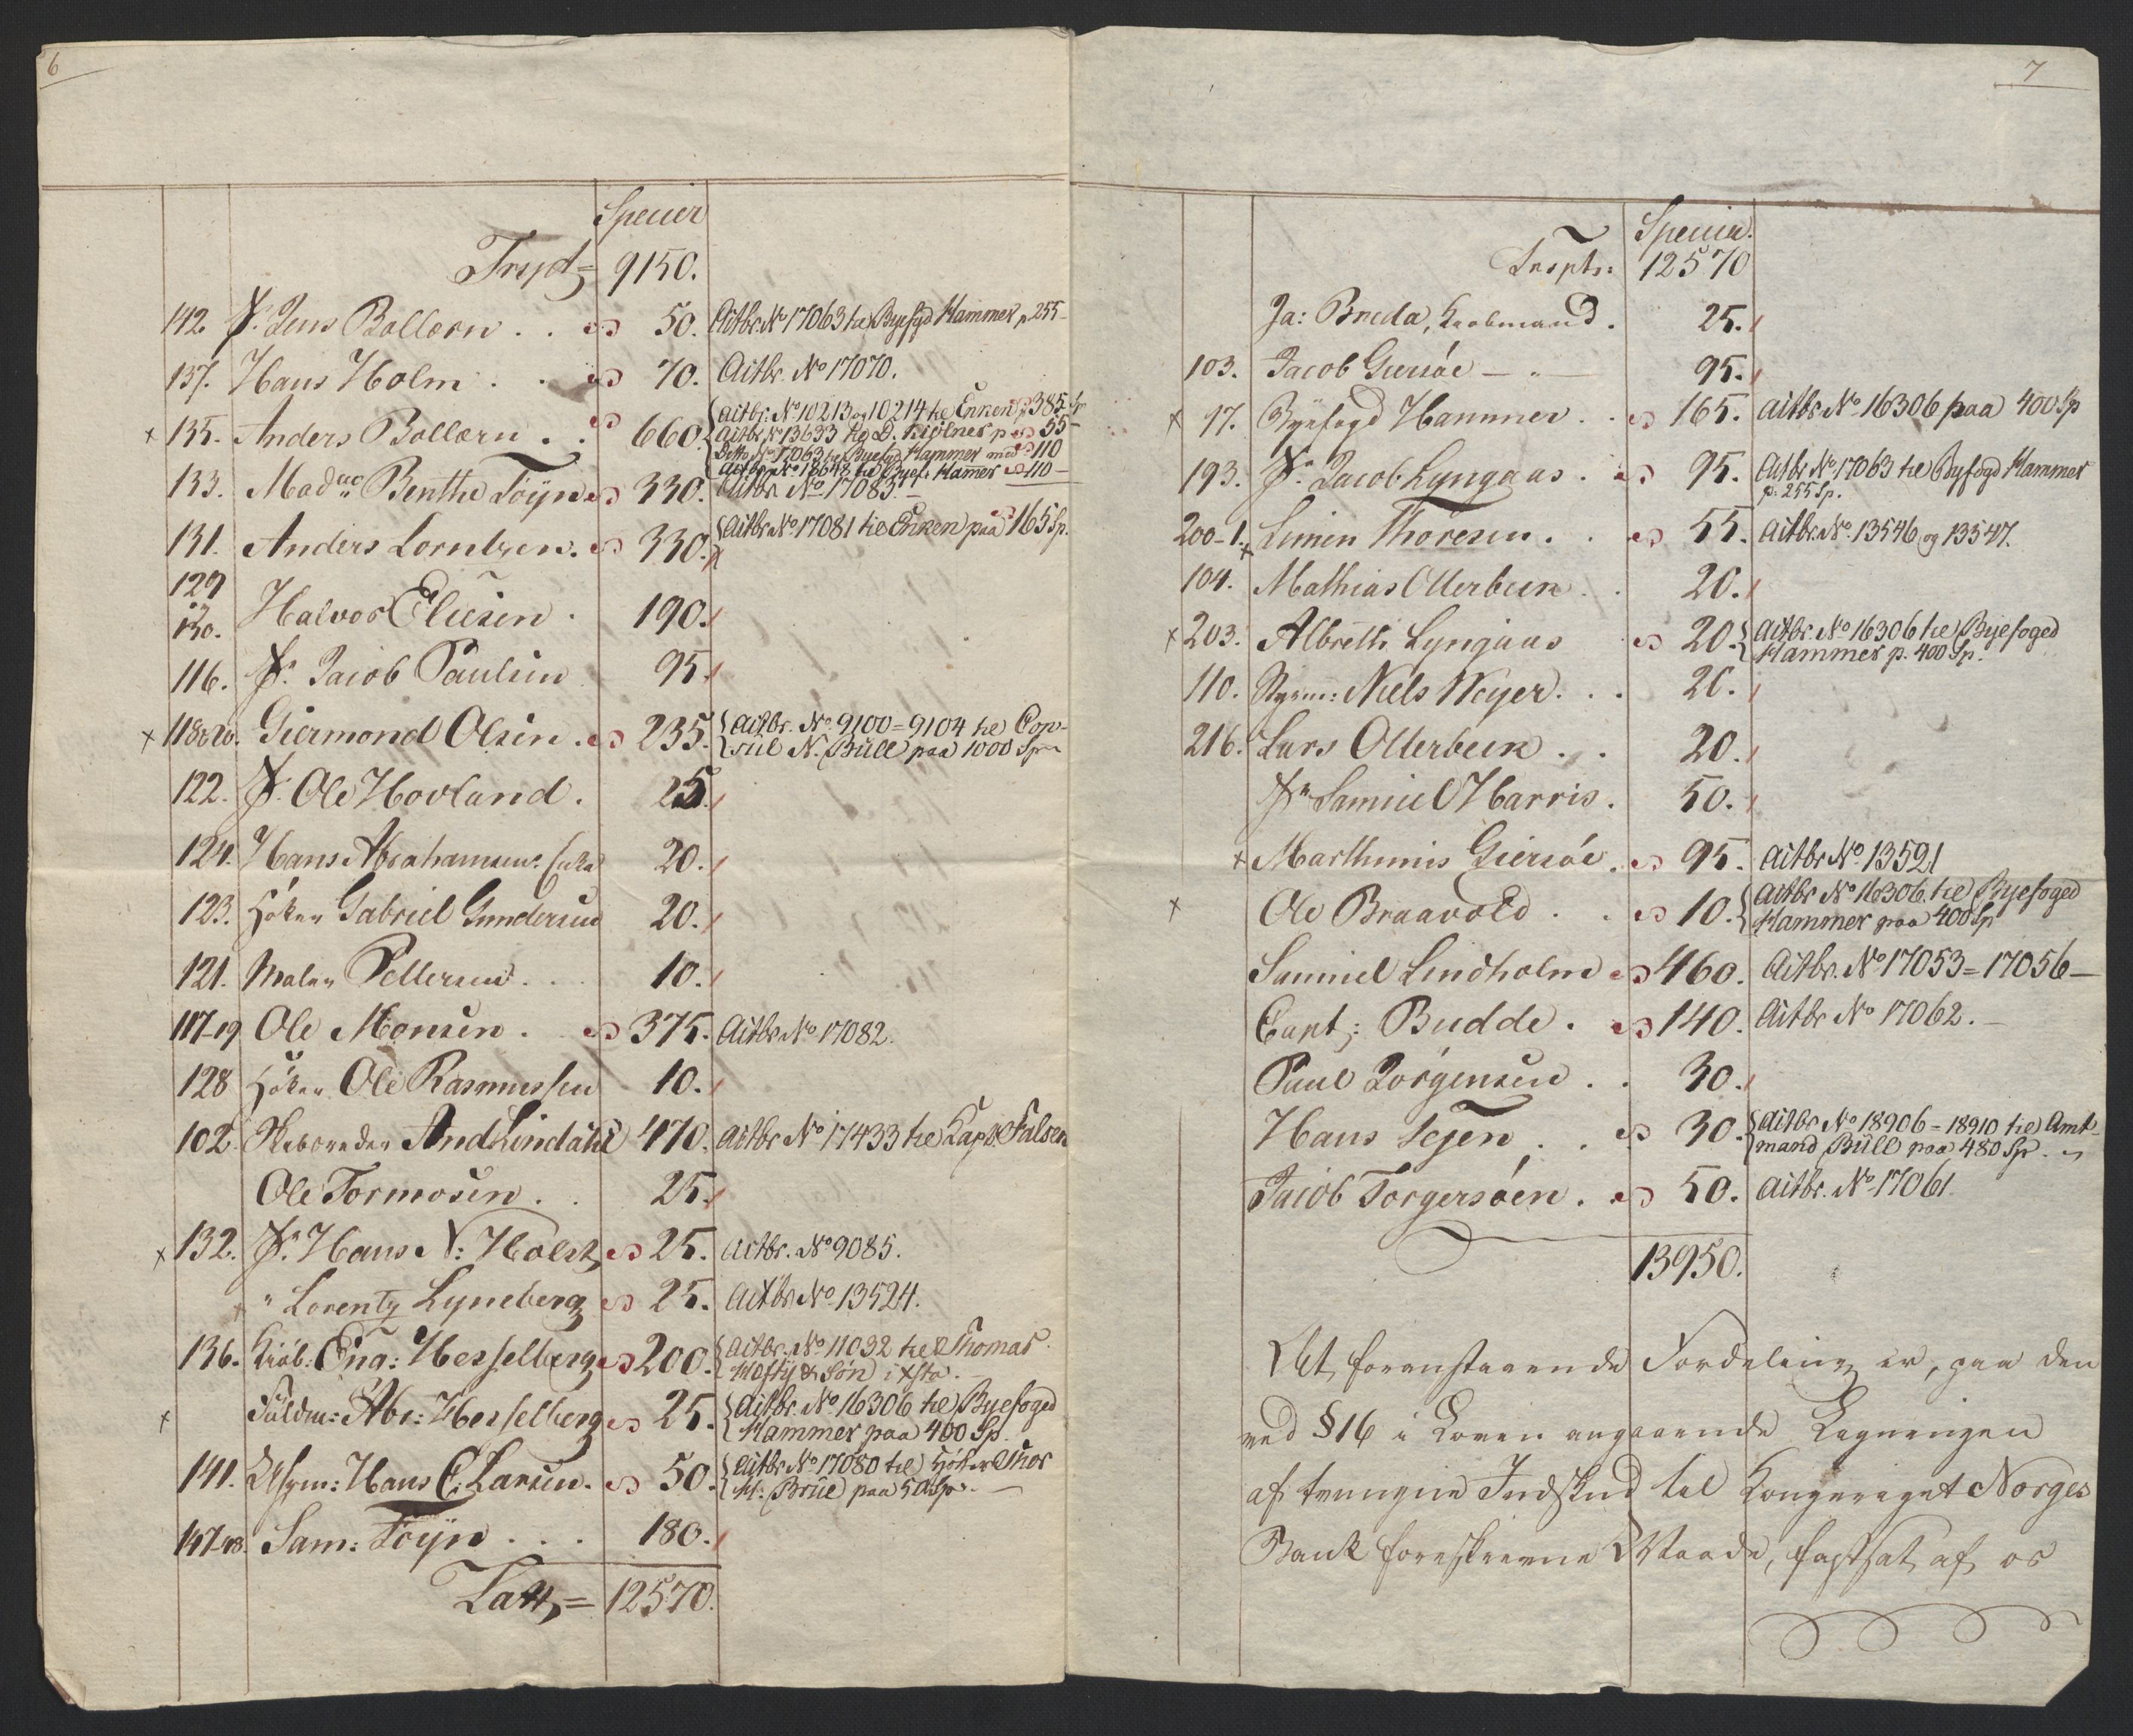 6
Specier
9150.
142. Sr. Jens Bollærn . . 50. Actbr. No 17063 til Byefgd Hammer p 255-
137. Hans Holm . . 70. Actbr. No 17070.
x 135. Anders Bollærn . . 660. Actbr: No 10213 og 10214 til Enken p 385 Sp
Actbr No 13633 til D. Kiölner p 55-
Ditto No 17063 til Byefgd Hammer med 110
Actbr No 18648 til Byef. Hamer 110-
133. Madme Benthe Töyn 330. Actbr No 17083.-
131. Anders Lorntzen. 330. Actbr No 17081 til Enken paa 165 Sp.
129
130. Halvor Eliesen . 190.
116. Sr. Jacob Paulsen 95.
x 118 & 20. Giermond Olsen . 235. Actbr. No. 9100=9104 til Con-
sul N. Büll paa 1000 Sp
122. Sr. Ole Hovland . 25.
124. Hans Abrahamsens Enke 20.
123. Höker Gabriel Gundersen 20.
121. Maler Pettersen . . 10.
117-19 Ole Monsen . 375. Actbr No 17082.
128 Höker Ole Rasmussen 10.
102. Skibsreder And Lindahl 470. Actbr No 17433 til Capt. Falsen
Ole Tormosen . . 25.
x 132. Sr. Hans N: Holst 25. Actbr. No 9085.
x " Lorentz Lyneberg 25. Actbr No 13524.
136. Kiöb: Eng: Hesselberg 200. Actbr. No 11032 til Thomas
& Sön i Xsta.
x Fuldm: Abr: Hesselberg 25. Actbr. No 16306 til Byefoged
Hammer paa 400 Sp.
141. Hans C. Larsen. 50. Actbr No 17080 til Höker Thor
M: Brüe paa 50 Sp. -
147-48. Sam: Töyn . . . 180.
Latt = 12570.
7
Specier.
Trspts: 12570
Ja: Breda, Kiøbmand . 25.
103. Jacob Giersöe - " - 95.
x 97. Byefogd Hammer . . 165. Actbr No 16306 paa 400 Sp
193. Sr. Jacob Lyngaas . 95. Actbr No 17063 til Byfogd Hammer
p. 255 Sp.
200-1. x Simen Thoresen . . 55. Actbr. No. 13546 og 13547.
104. Mathias Otterbeck . . 20.
x 203. Albreth Lyngaas 20. Actbr. No 16306 til Byefoged
Hammer p. 400 Sp.
110. Styrm: Niels Weyer . . . 20.
216. Lars Otterbeck . . 20.
Sr Samuel Harris . 50.
x Marthinis Giersöe . 95. Actbr No 13521
x Ole Braavold . . 10. Actbr No 16306 til Byefoged
Hammer paa 400 Sp
Samuel Lindholm 460. Actbr. No 17053=17056-
Capt: Budde . 140. Actbr No 17062.-
Paul Jörgensen . . 30.
Hans Tejen . . 30. Actbr No 18906=18910 til Amt-
mand Büll paa 480 Sp. -
Jacob Torgersöen . 50. Actbr. No 17061.
13950.
At foranstaaende Fordeling er, paa den
ved §16 i Loven angaaende Ligningen
af tvungne Indskud til Kongeriget Norges
Bank foreskrevne Maade, fastsat af os